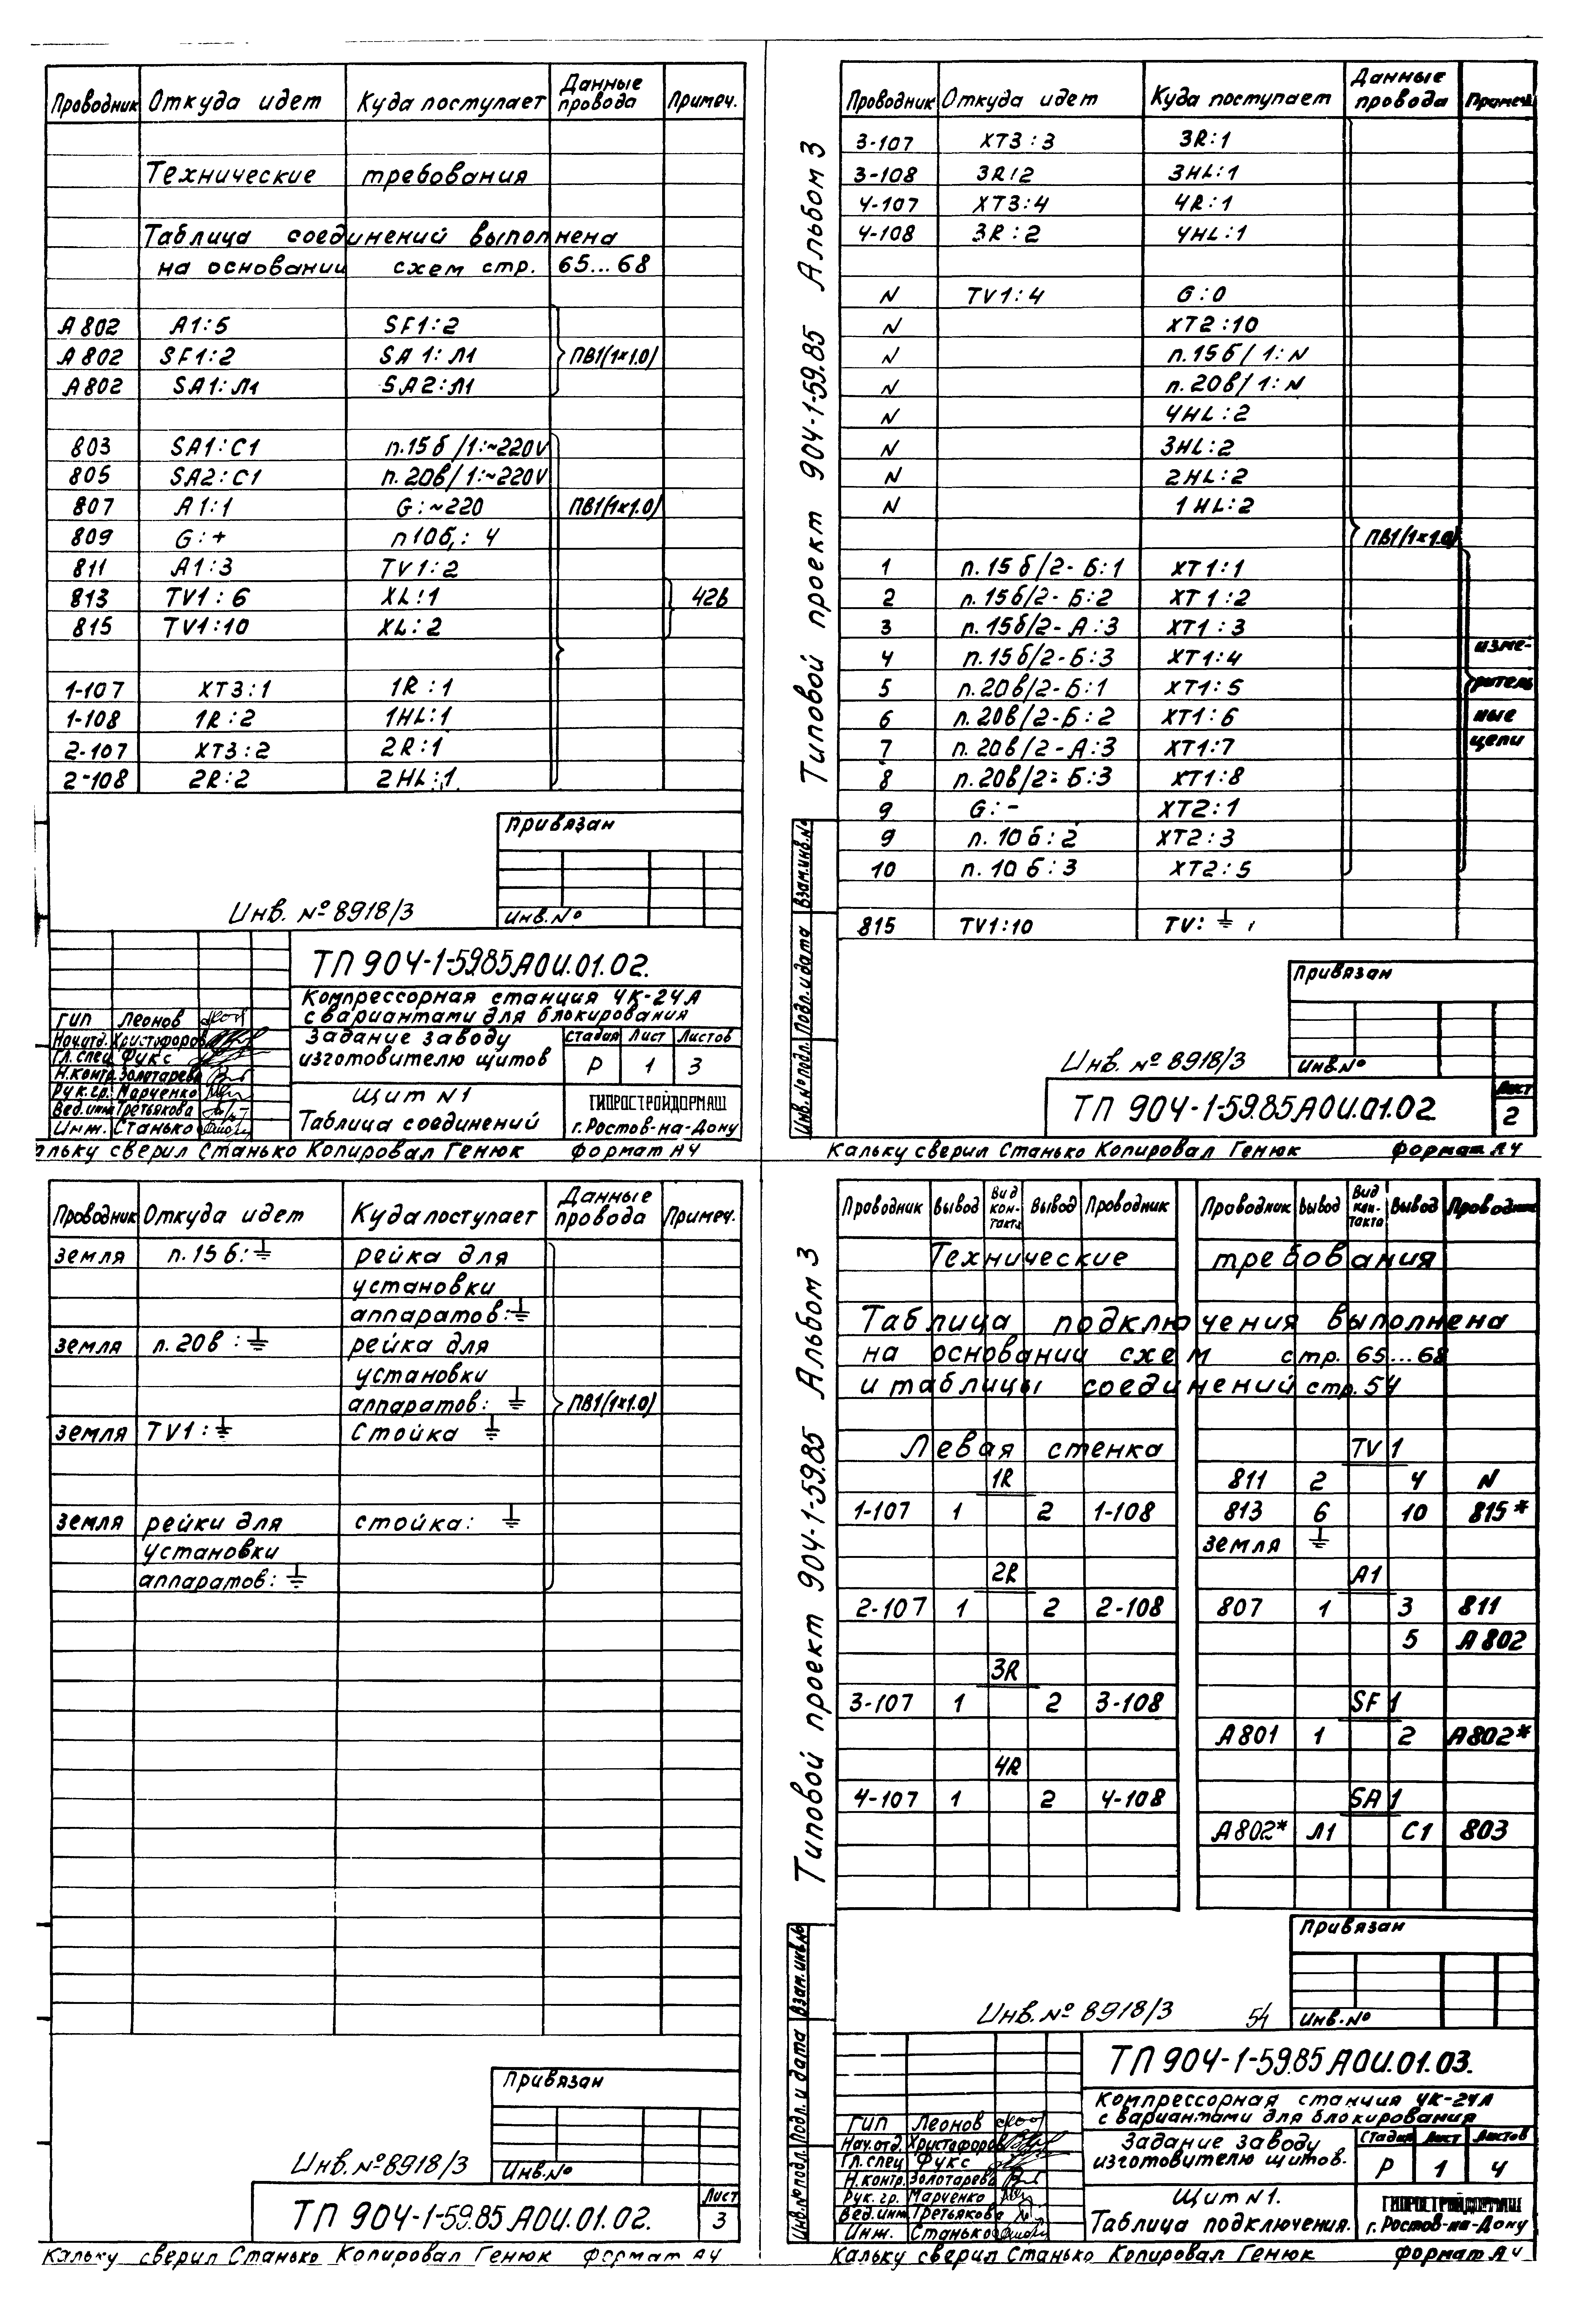 Проводник Откуда идет Куда поступает Данные провода Примеч.
Технические требования
Таблица соединений выполнена
на основании схем стр. 65...68
А802 А1:5 SF1:2
А802 SF1:2 SA1:Л1 ПВ1(1×1.0)
А802 SA1:Л1 SA2:Л1
803 SA1:С1 п.15б/1:~220V
805 SA2:С1 п.20в/1:~220V
807 А1:1 G:~220 ПВ1(1×1.0)
809 G:+ п10б,:4
811 А1:3 TV1:2
813 TV1:6 XL:1 42в
815 TV1:10 XL:2
1-107 XT3:1 1R:1
1-108 1R:2 1HL:1
2-107 XT3:2 2R:1
2-108 2R:2 2HL:1
Привязан
Инв. № 8918/3
Инв.№
ТП 904-1-59.85 АОИ.01.02.
Компрессорная станция 4К-24А
с вариантами для блокирования
ГИП Леонов
Нач.отд. Христофоров
Гл.спец Фукс
Н.контр. Золотарева
Рук.гр. Марченко
Вед.инж Третьякова
Инж. Станько
Задание заводу
изготовителю щитов
Стадия Лист Листов
Р 1 3
Щит N1
Таблица соединений
ГИПРОСТРОЙДОРМАШ
г.Ростов-на-Дону
альку сверил Станько Копировал Генюк формат А4
Типовой проект 904-1-59.85 Альбом 3
Проводник Откуда идет Куда поступает Данные провода Примеч
3-107 XT3:3 3R:1
3-108 3R:2 3HL:1
4-107 XT3:4 4R:1
4-108 3R:2 4HL:1
N TV1:4 G:0
N XT2:10
N п.15б/1:N
N п.20в/1:N
N 4HL:2
N 3HL:2
N 2HL:2
N 1HL:2
ПВ1(1×1.0)
1 п.15б/2-Б:1 XT1:1
2 п.15б/2-Б:2 XT1:2
3 п.15б/2-А:3 XT1:3
4 п.15б/2-Б:3 XT1:4
5 п.20в/2-Б:1 XT1:5
6 п.20в/2-Б:2 XT1:6
7 п.20в/2-А:3 XT1:7
8 п.20в/2-Б:3 XT1:8
измерительные цепи
9 G:- XT2:1
9 п.10б:2 XT2:3
10 п.10б:3 XT2:5
815 TV1:10 TV:⏚
Взам.инв.№
Подп.и дата
Инв.№подл.
Привязан
Инв. № 8918/3
Инв.№
ТП 904-1-59.85 АОИ.01.02
Лист
2
Кальку сверил Станько Копировал Генюк формат А4
Проводник Откуда идет Куда поступает Данные провода Примеч.
земля п.15б:⏚ рейка для
установки
аппаратов:⏚
земля п.20в:⏚ рейка для
установки
аппаратов:⏚ ПВ1(1×1.0)
земля TV1:⏚ Стойка ⏚
земля рейки для стойка:⏚
установки
аппаратов:⏚
Привязан
Инв.№8918/3
Инв.№
ТП 904-1-59.85 АОИ.01.02.
Лист
3
Кальку сверил Станько Копировал Генюк формат А4
Типовой проект 904-1-59.85 Альбом 3
Проводник Вывод Вид контакта Вывод Проводник Проводник Вывод Вид контакта Вывод Проводник
Технические требования
Таблица подключения выполнена
на основании схем стр. 65...68
и таблицы соединений стр.54
Левая стенка TV1
1R 811 2 4 N
1-107 1 2 1-108 813 6 10 815*
земля ⏚
2R А1
2-107 1 2 2-108 807 1 3 811
5 А802
3R
3-107 1 2 3-108 SF1
А801 1 2 А802*
4R
4-107 1 2 4-108 SA1
А802* Л1 С1 803
Взам.инв.№
Подп. и дата
Инв.№подл.
Привязан
Инв.№ 8918/3
54
Инв.№
ТП 904-1-59.85 АОИ.01.03.
Компрессорная станция 4К-24А
с вариантами для блокирования
ГИП Леонов
Нач.отд. Христофоров
Гл.спец Фукс
Н.контр. Золотарева
Рук.гр. Марченко
Вед.инж Третьякова
Инж. Станько
Задание заводу
изготовителю щитов.
Стадия Лист Листов
Р 1 4
Щит N1.
Таблица подключения.
ГИПРОСТРОЙДОРМАШ
г.Ростов-на-Дону
Кальку сверил Станько Копировал Генюк формат А4